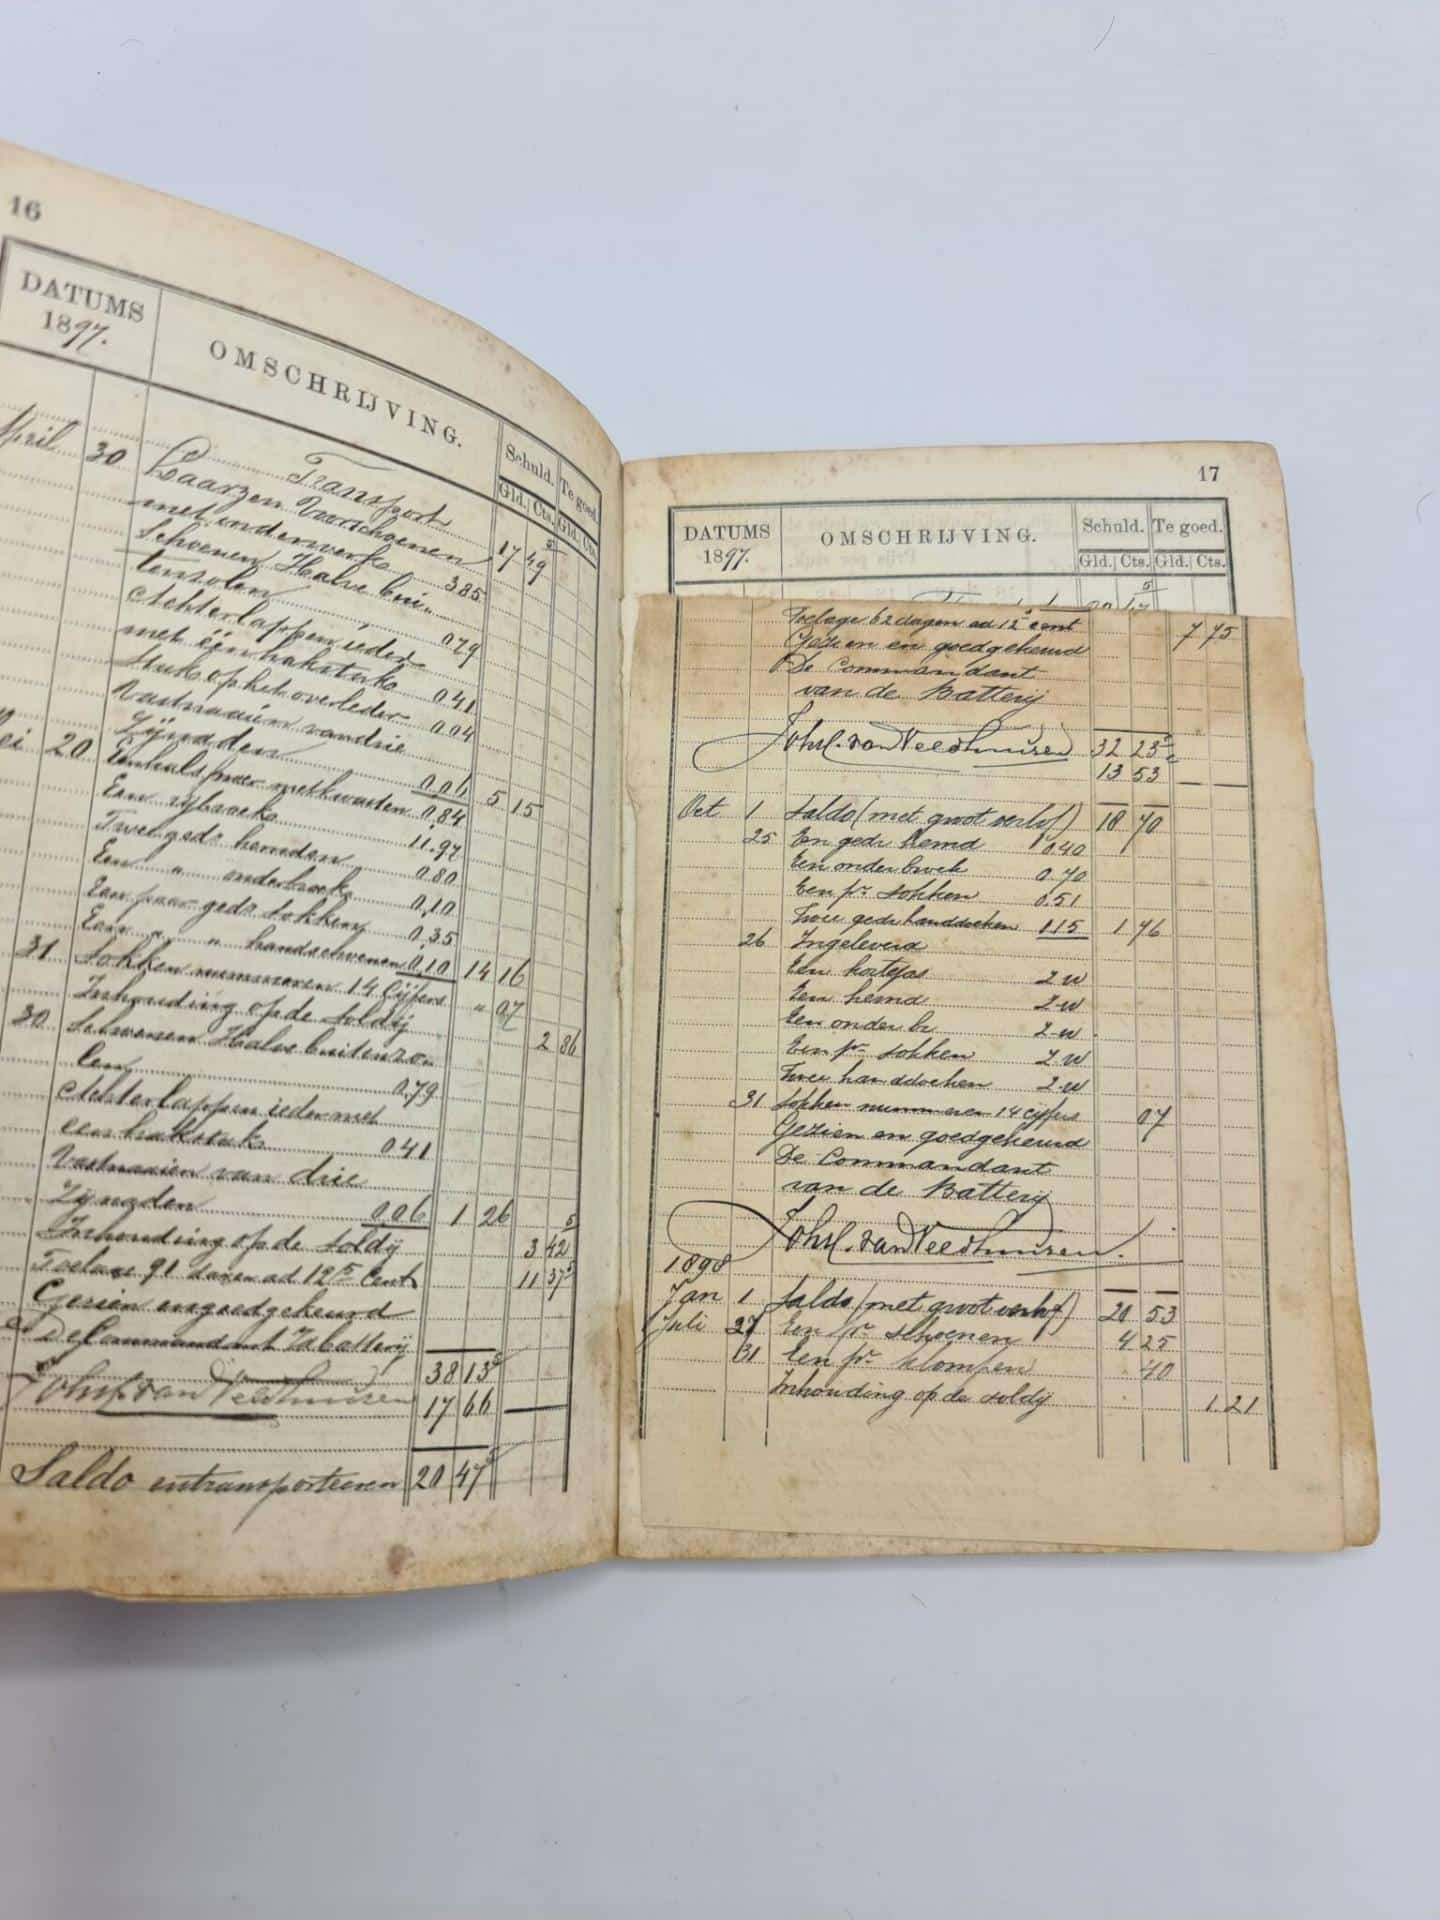 16
DATUMS 1897. OMSCHRIJVING. Schuld. Te goed.
Gld. Cts. Gld. Cts.
Transport 17 49 5
April 30 Laarzen Voorschoenen
met onderwerk 3.85
Schoenen Halve bui„
tenzolen 0.79
Achterlappen ieder
met één hakstuk 0.41
Stuk op het overleder 0.04
Vastnaaien van drie
Zijnaden 0.06 5 15
20 Een halspaar met kwasten 0.84
Een rijbroek 11.97
Twee gedr hemden 0.80
Een „ onderbroek 0.10
Een paar gedr sokken 0.35
Een „ „ handschoenen 0.10 14 16
31 Sokken nummeren 14 Cijfers „ 07
Inhouding op de soldij 2 86
30 Schoenen Halve buitenzo„
len 0.79
Achterlappen ieder met
een hakstuk 0.41
Vastnaaien van drie
Zijnaden 0.06 1 26
Inhouding op de soldij 3 42 5
Toelage 91 dagen ad 12 5 Cent 11 37 5
Gezien en goedgekeurd
De Commandant Batterij
38 13 5
Joh. van Veldhuisen 17 66 —
Saldo entransporteeren 20 47 5
17
DATUMS 1897. OMSCHRIJVING. Schuld. Te goed.
Gld. Cts. Gld. Cts.
Toelage 62 dagen ad 12 5 cent 7 75
Gezien en goedgekeurd
De Commandant
van de Batterij
Joh. van Veldhuisen 32 23 5
13 53 — —
Oct 1 Saldo (met groot verlof) 18 70
25 En gedr hemd 0.40
Een onderbroek 0.70
Een pr sokken 0.51
Twee gedr handdoeken 1 76
26 Ingeleverd
Een
Een hemd
Een onder br.
Een pr sokken
Twee handdoeken
31 Sokken nummeren 14 cijfers 07
Gezien en goedgekeurd
De Commandant
van de Batterij
Joh. van Veldhuisen.
1898
Jan 1 Saldo (met groot verlof) 20 53
Juli 27 Een pr schoenen 4 25
31 Een pr klompen 40
Inhouding op de soldij 1. 21